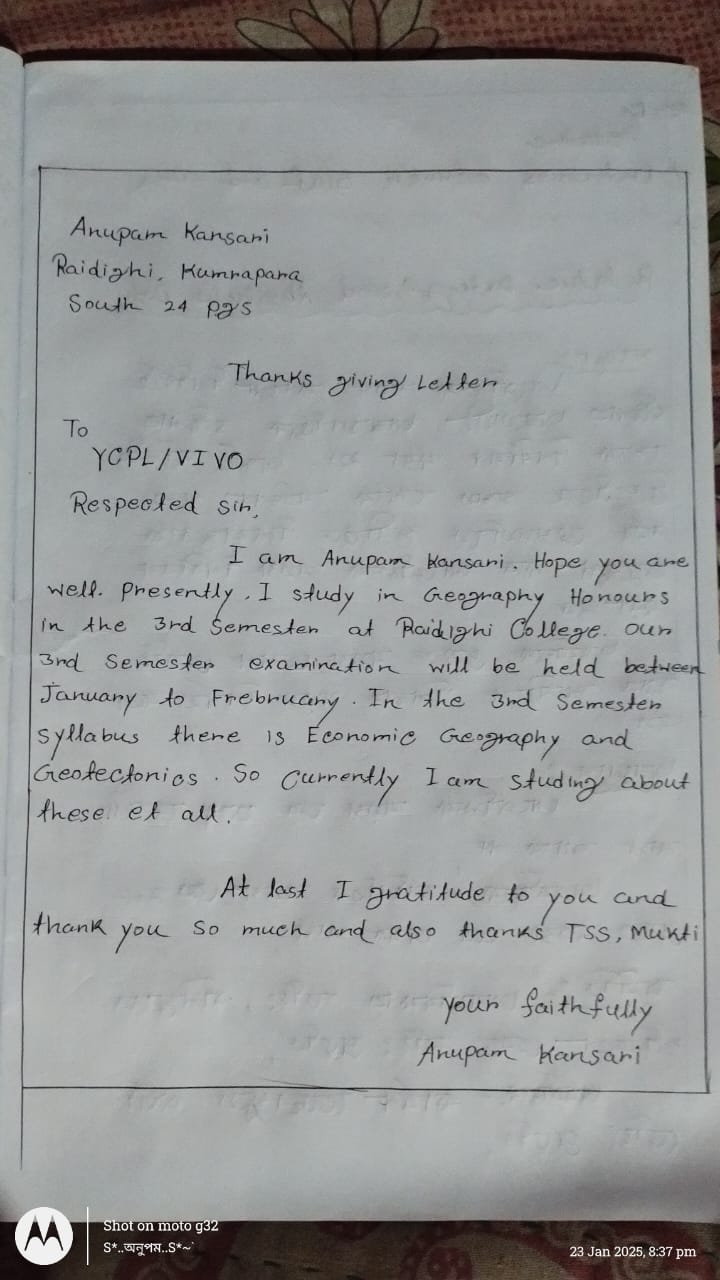 Anupam Kansari
Raidighi, Kumrapara
South 24 pgs
Thanks giving Letter
To
YCPL/VIVO
Respected sir,
I am Anupam Kansari. Hope you are
well. Presently, I study in Geography Honours
in the 3rd Semester at Raidighi College. our
3rd Semester examination will be held between
January to Frebruary. In the 3rd Semester
syllabus there is Economic Geography and
Geotectonios. So currently I am studing about
these et all.
At last I gratitude to you and
thank you so much and also thanks TSS, Mukti
your faithfully
Anupam Kansari
Shot on moto g32
S*..অনুপম..S*~`
23 Jan 2025, 8:37 pm